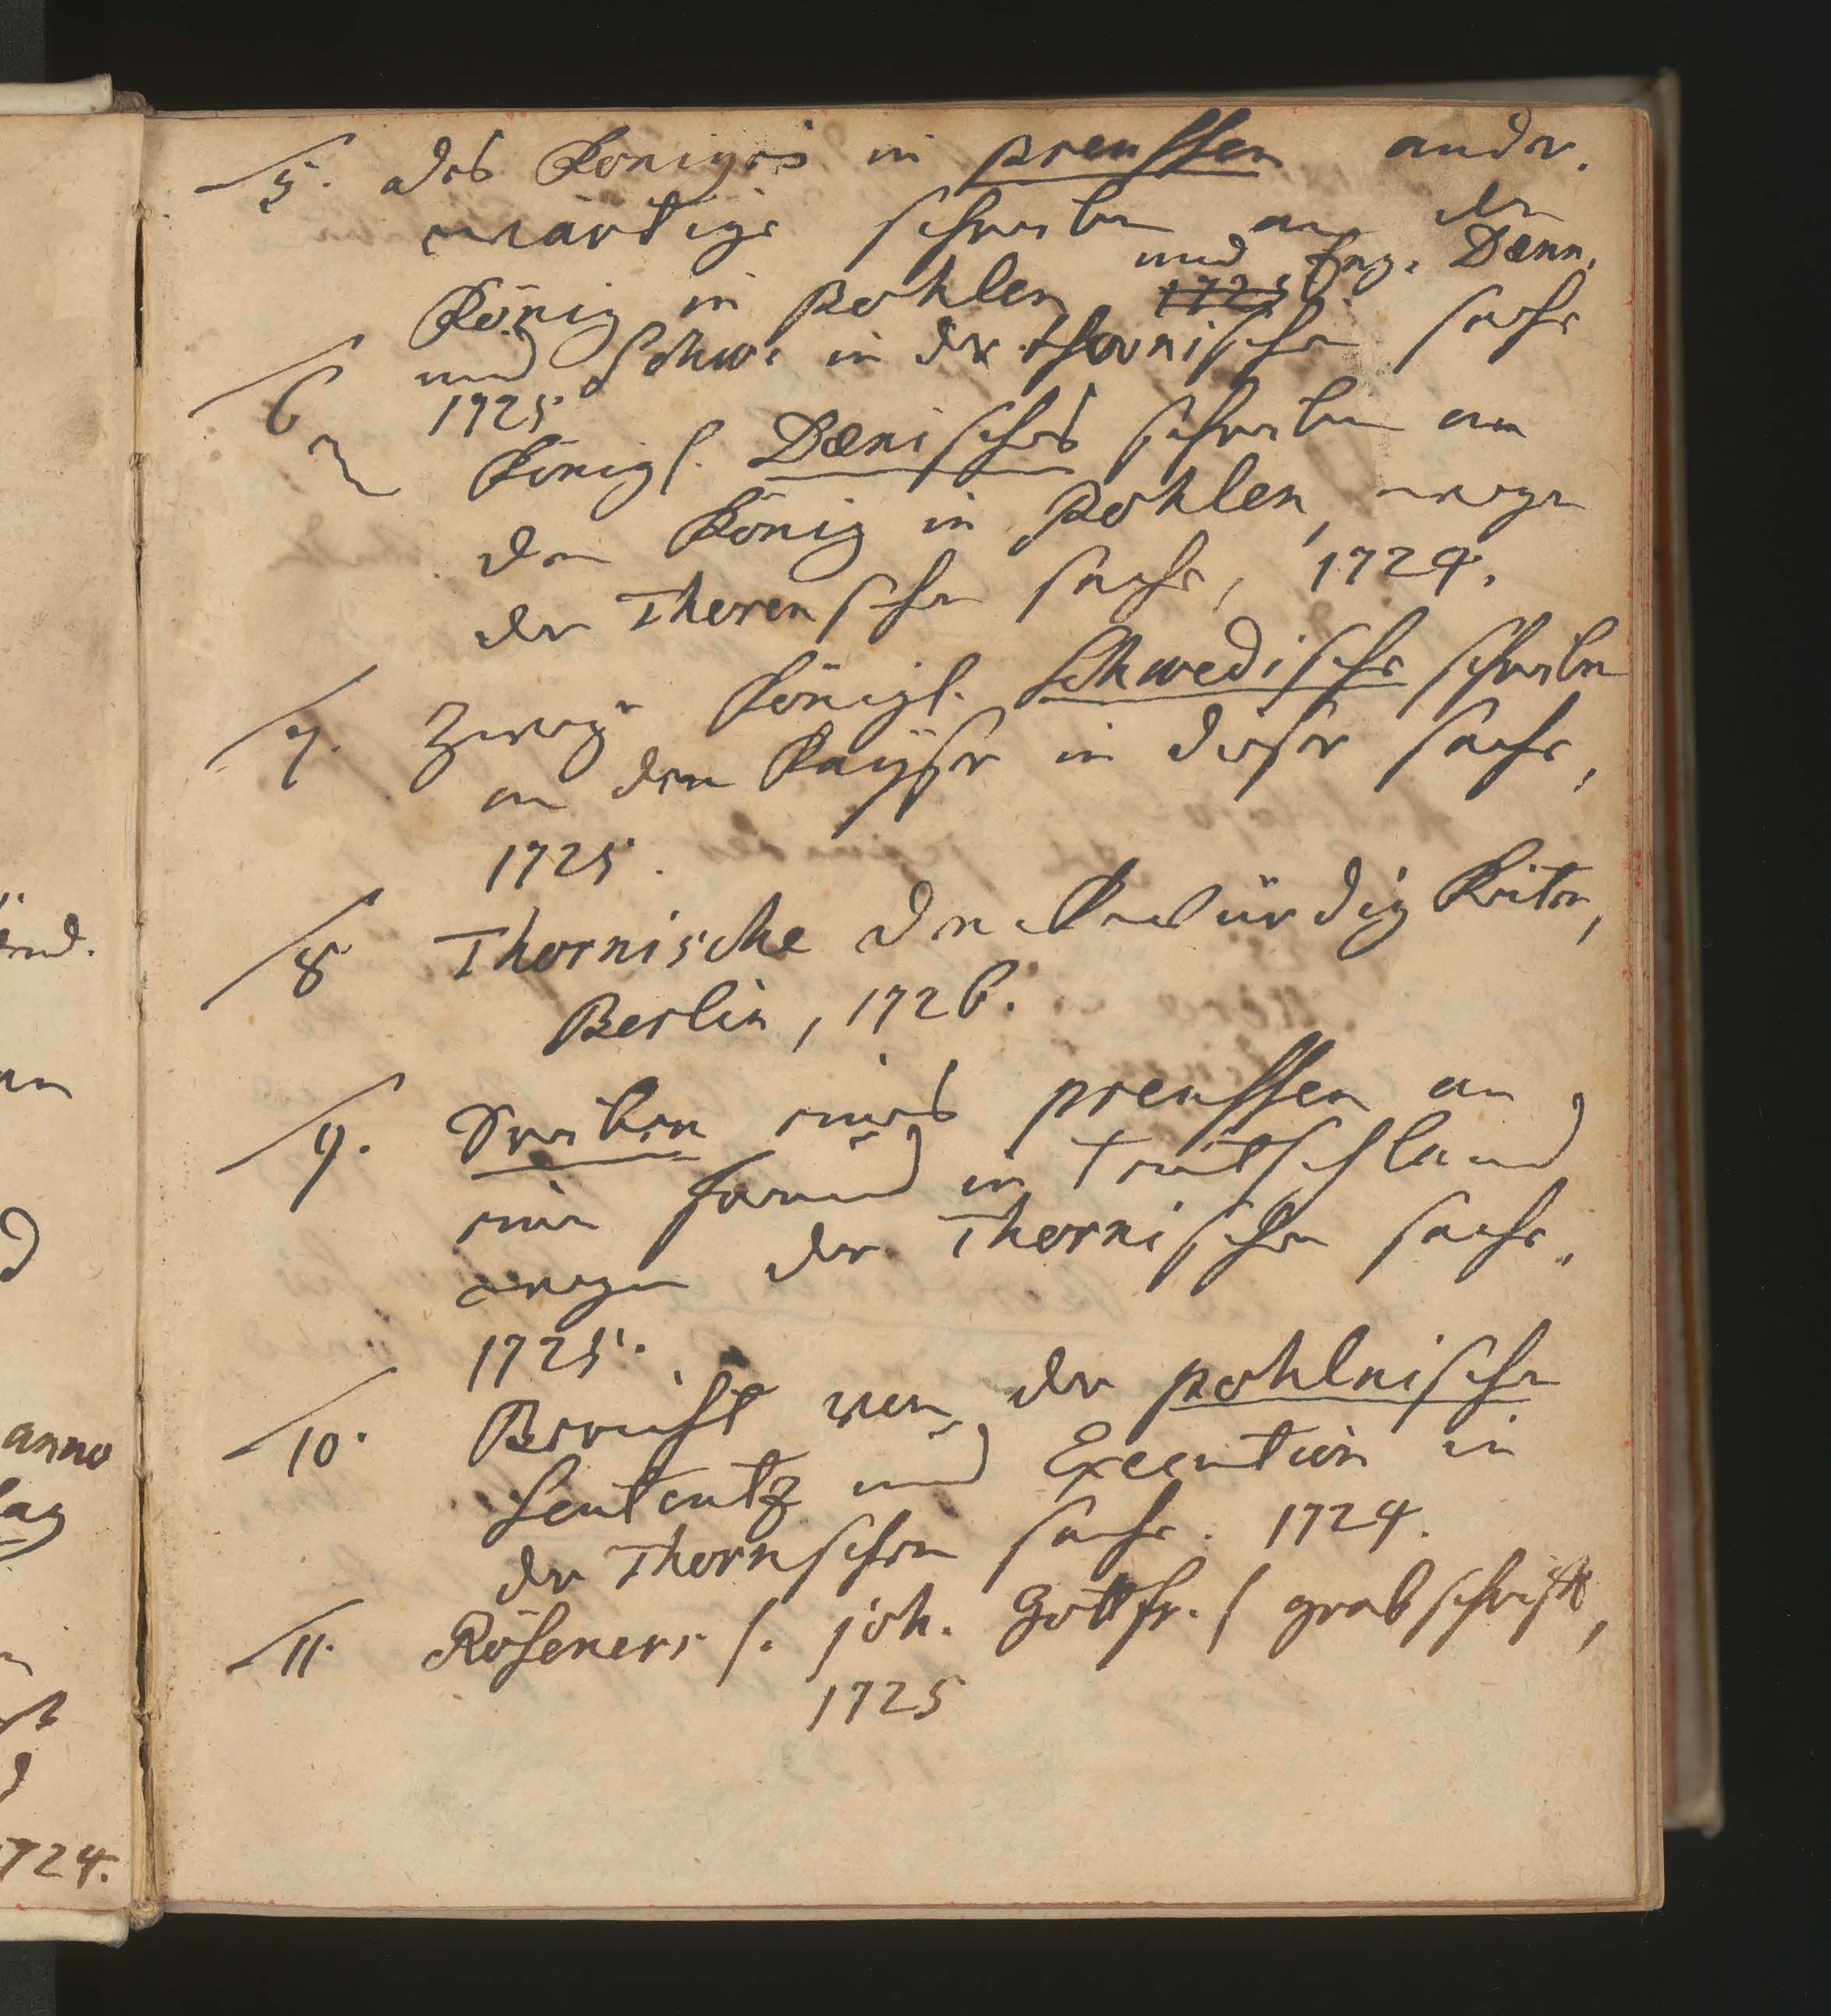 5. des Königes in preussen ander.
wärtige schreiben an den
König in pohlen 1725 und Eng. Dænn.
und Schw. in der thornischen sache
1725
6 Königl. Dænisches schreiben an
den König in Pohlen, wegen
der Thorenschen sache, 1724.
7. Zweye Königl. Schwedische schreiben
an den Kayser in dieser sache,
1725.
8 Thornische Denckwürdigkeiten,
Berlin, 1726.
9. eines preussen an
einen freund in Teutschland
wegen der Thornischen sache.
1725.
10. Bericht von der pohlnischen
Sententz und Execution in
der Thornschen sache. 1724.
11. Röseners /. joh. Gottfr. / grabschrifft,
1725
end.
anno
lag
1724.